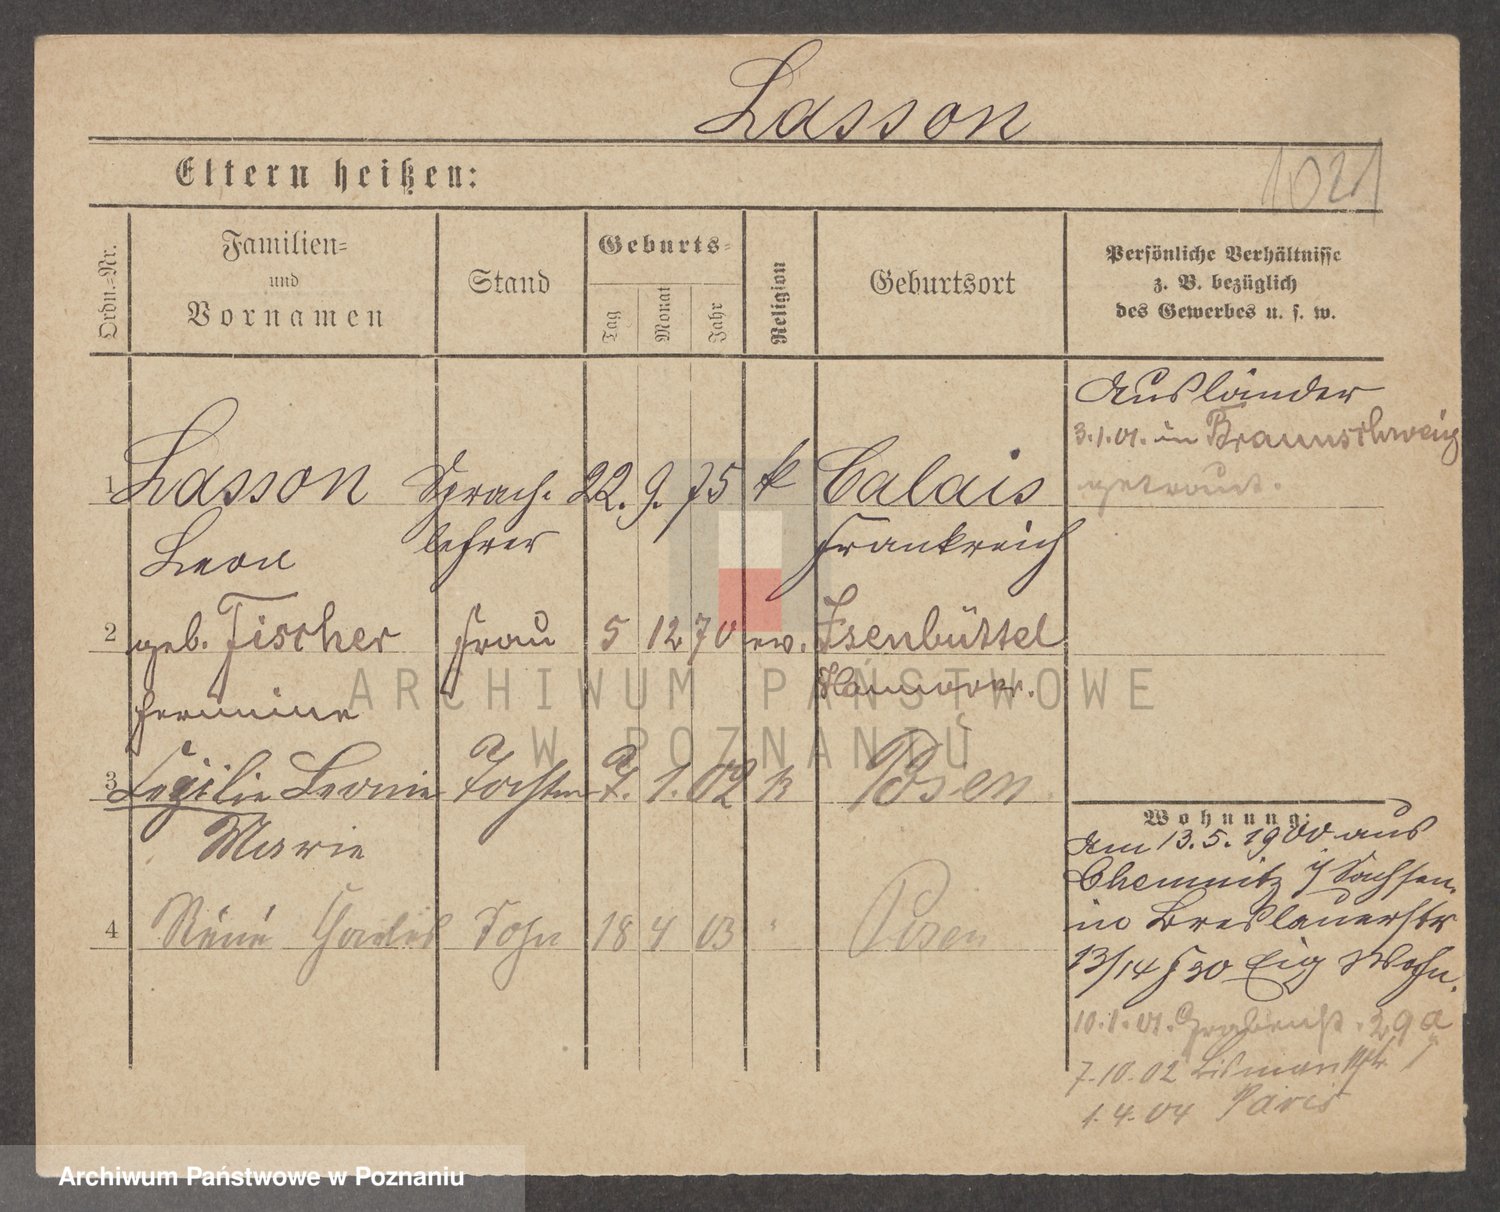 Lasson
1021
Eltern heißen:
Ordn.-Nr.
Familien-
und
Vornamen
Stand
Geburts-
Tag
Monat
Jahr
Religion
Geburtsort
Persönliche Verhältnisse
z. B. bezüglich
des Gewerbes u. s. w.
Ausländer
3.1.01. in Braunschweig
getraut.
1 Lasson Sprach- 22. 9. 75 k Calais
Leon lehrer Frankreich
2 geb. Fischer Frau 5 12 70 ev. Isenbüttel
Hermine Hannover.
3 Cezilie Leonie Tochter 7. 1. 02 k Posen
Marie
4 Réné Charles Sohn 18 4 03 " Posen
Wohnung:
Am 13.5.1900 aus
Chemnitz i/Sachsen.
in Breslauerstr
13/14 Eig Wohn.
10.1.01. Grabenst. 29a
7.10.02 Bismarckstr 1
1.4.04 Paris
ARCHIWUM PAŃSTWOWE
W POZNANIU
Archiwum Państwowe w Poznaniu